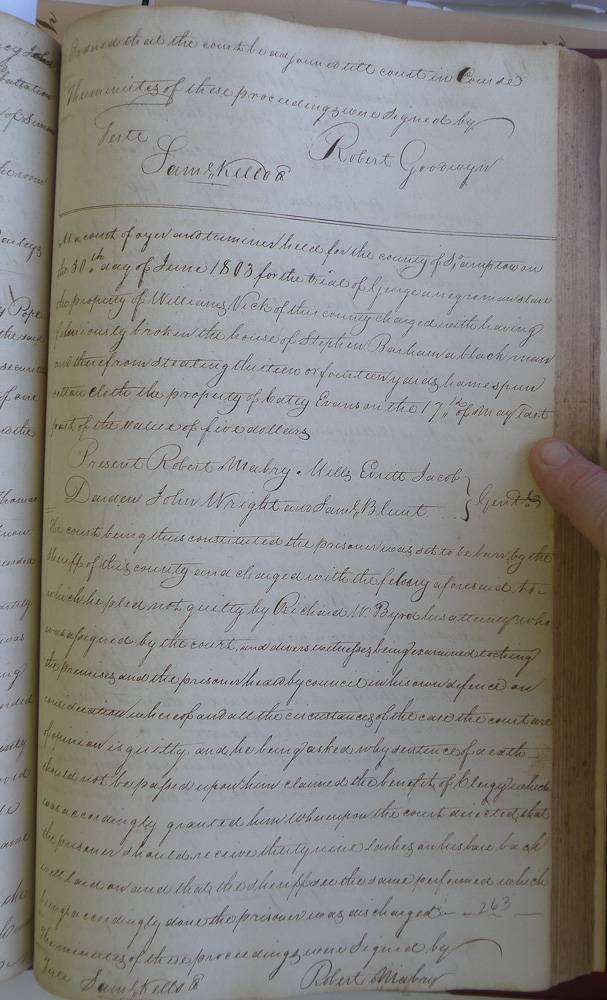 Ordered that the court be adjourned till court in Course
The minutes of these proceedings were Signed by
Teste
Robert Goodwyn
Saml Kello
At a court of oyer and terminer held for the county of S°ampton on
the 30th day of June 1803 for the trial of George a negro man slave
the property of William Vick of this county charged with having
feloniously broken the house of Stephen Barham a black man
and therefrom stealing thirteen or fourteen yards homespun
cotton cloth the property of Catey Evans on the 17th of May last
past of the value of five dollars
Present Robert Mabry. Mills Eviett Jacob
Darden John Wright and Saml Blunt } Gent.
The court being thus constituted the prisoner was set to be barr by the
sheriff of this county and charged with the felony aforesaid to
which he pled not guilty by Richard W Byrd his attorney who
was assigned by the court, and divers witnesses being examined touching
the premises and the prisoner heard by council in his own defence on
consideration whereof and all the circumstances of the case the court are
of opinion is guilty and he being asked why sentence of death
should not be passed upon him claimed the benefit of Clergy which
was accordingly granted him Whereupon the court directed that
the prisoner should receive thirty nine lashes on his bare back
well laid on and that the sheriff see the same performed which
being accordingly done the prisoner was discharged - 263 -
The minutes of these proceedings were Signed by
Teste Saml Kello Robert Mabry